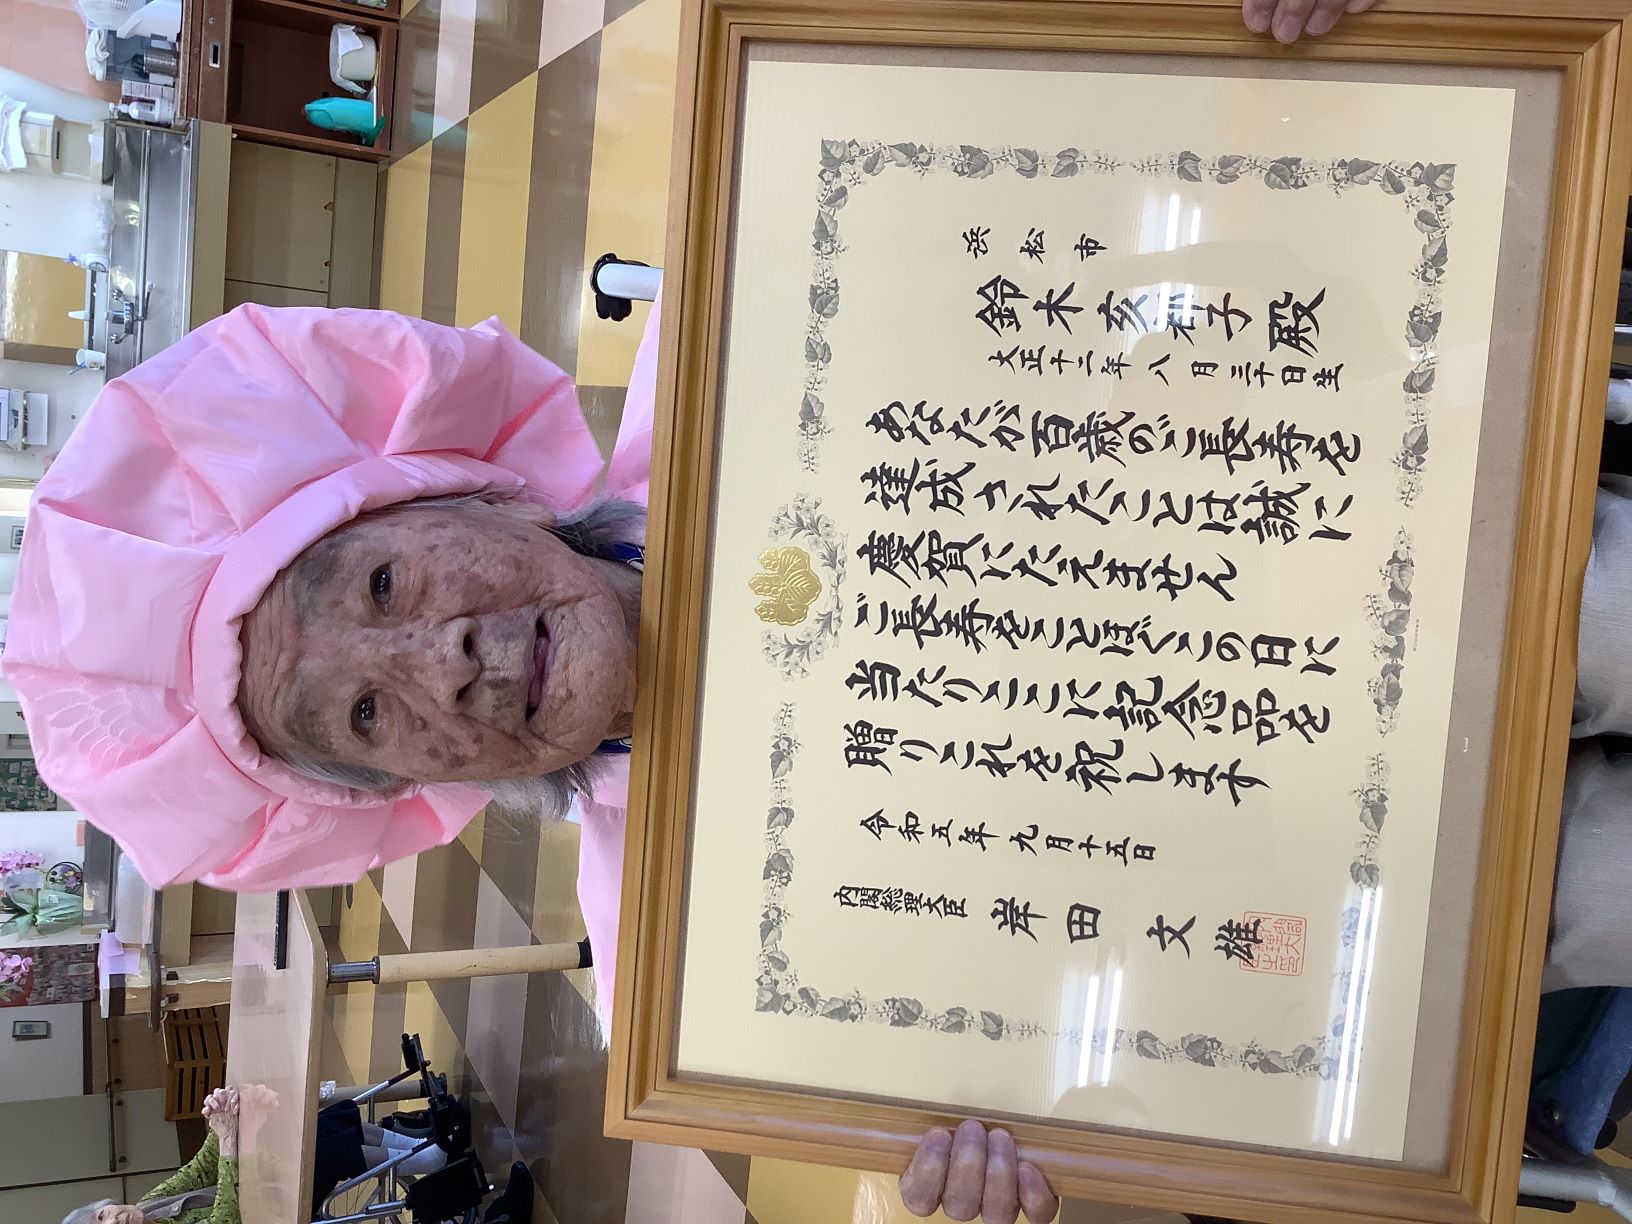 浜松市
鈴木亥子殿
大正十二年八月三十日生
あなたが百歳のご長寿を
達成されたことは誠に
慶賀にたえません
ご長寿をことほぐこの日に
当たりここに記念品を
贈りこれを祝します
令和五年九月十五日
内閣総理大臣 岸田文雄